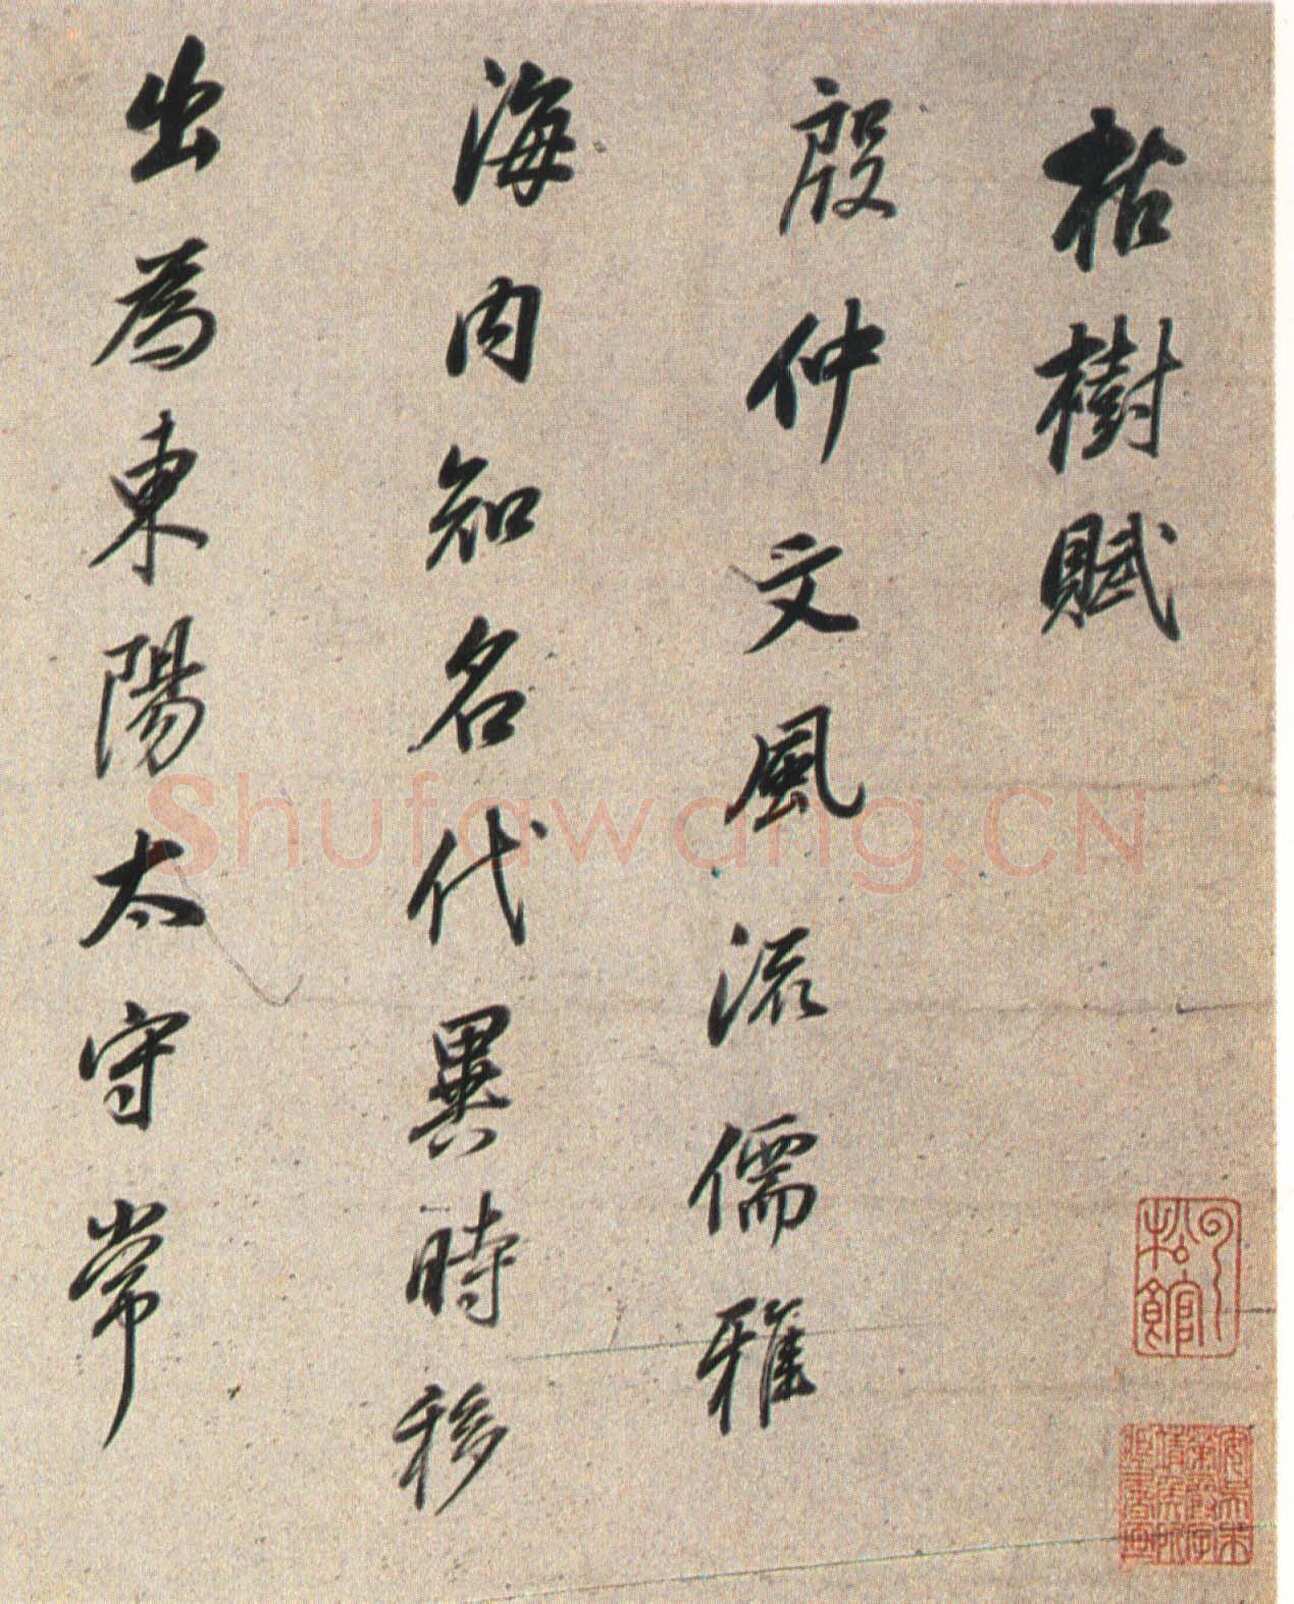 枯樹賦
殷仲文風流儒雅
海内知名代異時移
出為東陽太守常
Shufawang.CN